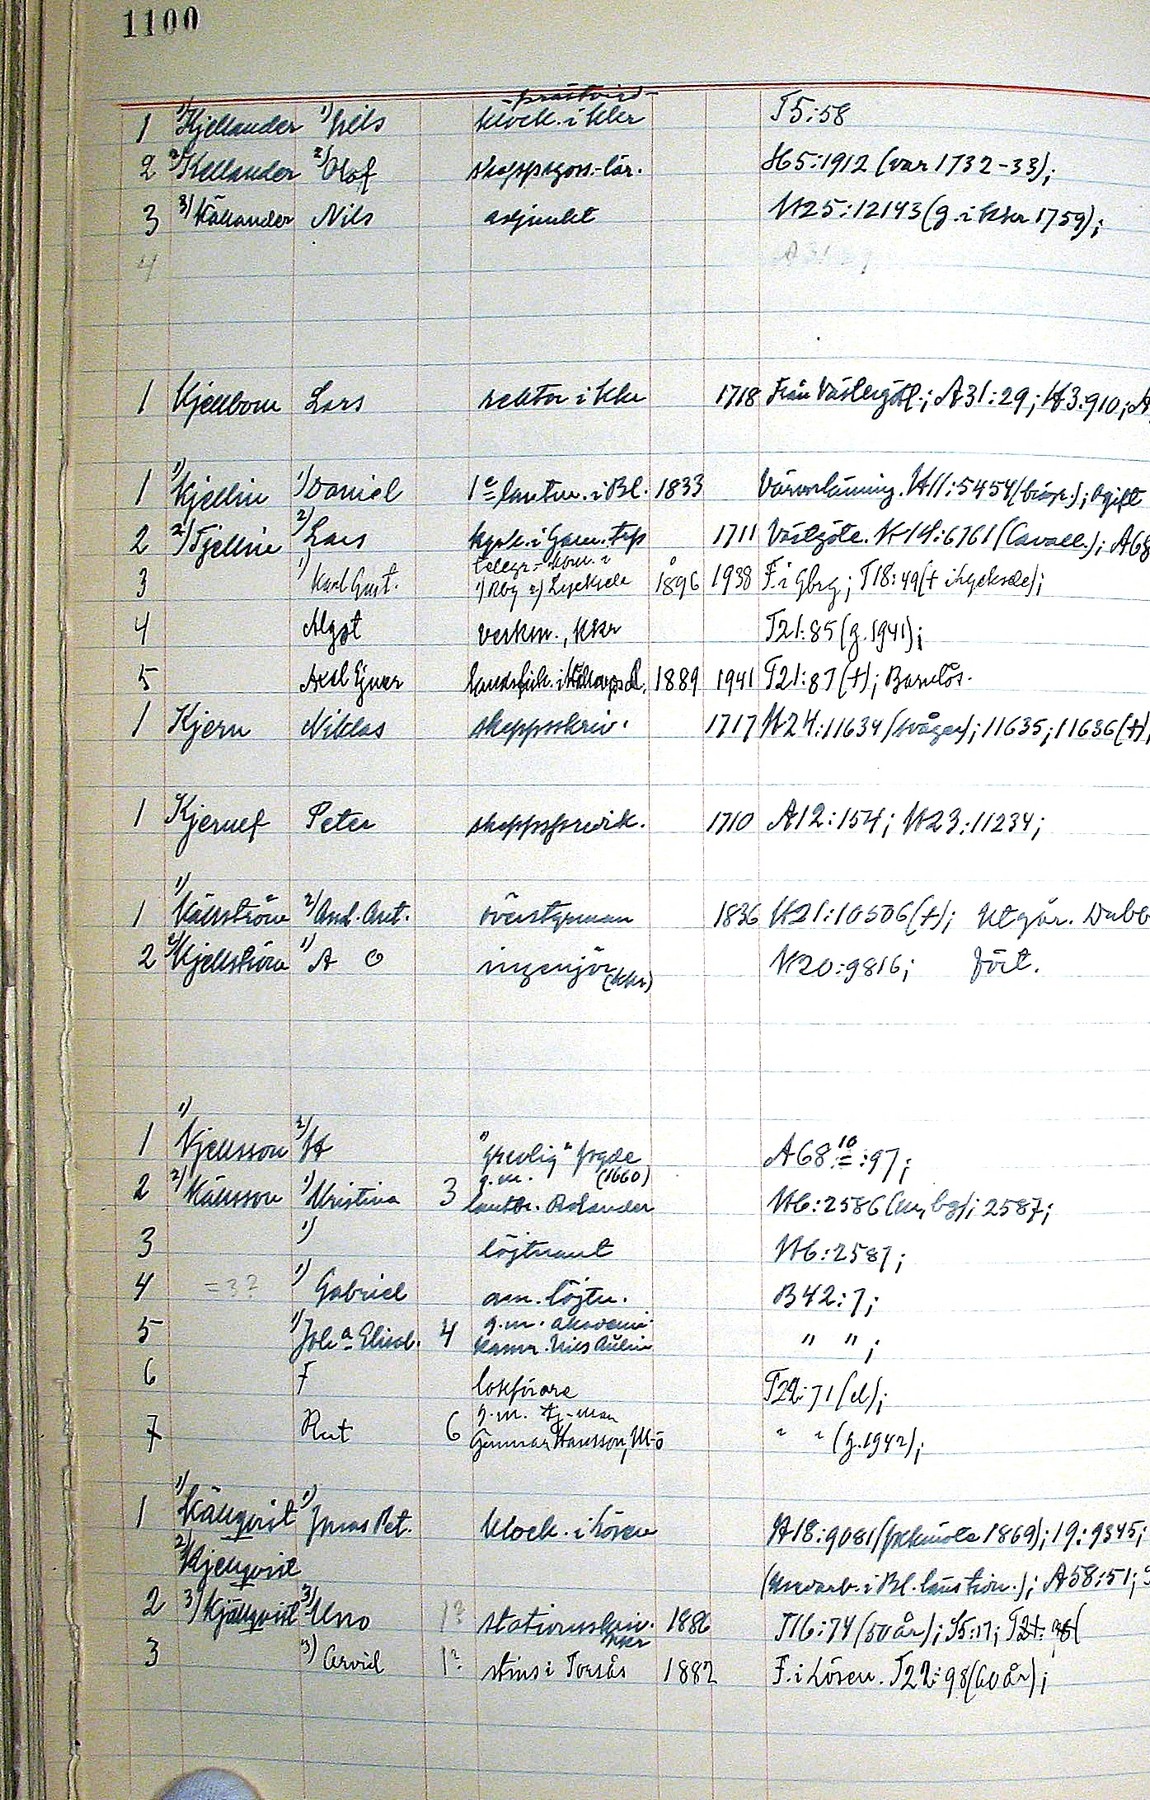 1100
1 1) Kjellander 1) Nils klock. i Kkr T5:58
2 2) Kellander 2) Olof skeppsgoss.-lär. H65:1912 (var 1732-33);
3 3) Källander Nils adjunkt N25:12143 (g. i Kkr 1759);
4
1 Kjellbom Lars rektor i Kkr 1718 Från Västergötl.; A31:29; K3:910; A
1 1) Kjellin 1) Daniel 1e lantm. i Bl. 1833 ; ogift
2 2) Tjellin 2) Lars 1711 Västgöte. (Cavall.); A68
telegr.-kom. i
3 1) Karl Gust. 1) Rby 2) Lycksele 1896 1938 F. i Gbrg; T18:49 († i Lycksele);
4 Algot verkm., Kkr T21:85 (g. 1941);
5 Axel Ejnar 1889 1941 T21:87 (†); Barnlös.
1 Kjern Niklas skeppsskriv. 1717 N24:11634 (svåger); 11635; 11636 (†),
1 Kjernef Peter 1710 A12:154; N23:11234;
1 1) Källström 2) And. Ant. överstyrman 1836 N21:10506 (†); Utgår. Dubb
2 2) Kjellström 1) A O ingenjör (Kkr) N20:9816; Fört.
1 1) Kjellsson 2) A "grevlig" fogde (1660) A68:10:97;
g.m.
2 2) Källsson 1) Kristina 3 N6:2586 ; 2587;
3 1) löjtnant N6:2587;
4 =3? 1) Gabriel am. löjtn. B42:7;
g.m. akademi-
5 1) Joha Elisab. 4 kamr. Nils Aulin " ";
6 F lokförare T22:71 (d);
g.m.
7 Rut 6 Gunnar Hansson, M-ö " " (g. 1942);
1 1) Källqvist 1) Jonas Pet. klock. i Lösen A18:9081 ( 1869); 19:9345;
2) Kjellqvist (medarb. i Bl. ); A58:51;
2 3) Kjällqvist 3) Uno 1? stationsskriv. Kkr 1886 T16:74 (50 år); S5:17;
3 3) Arvid 1? stins i Torsås 1882 F. i Lösen. T22:98 (60 år);